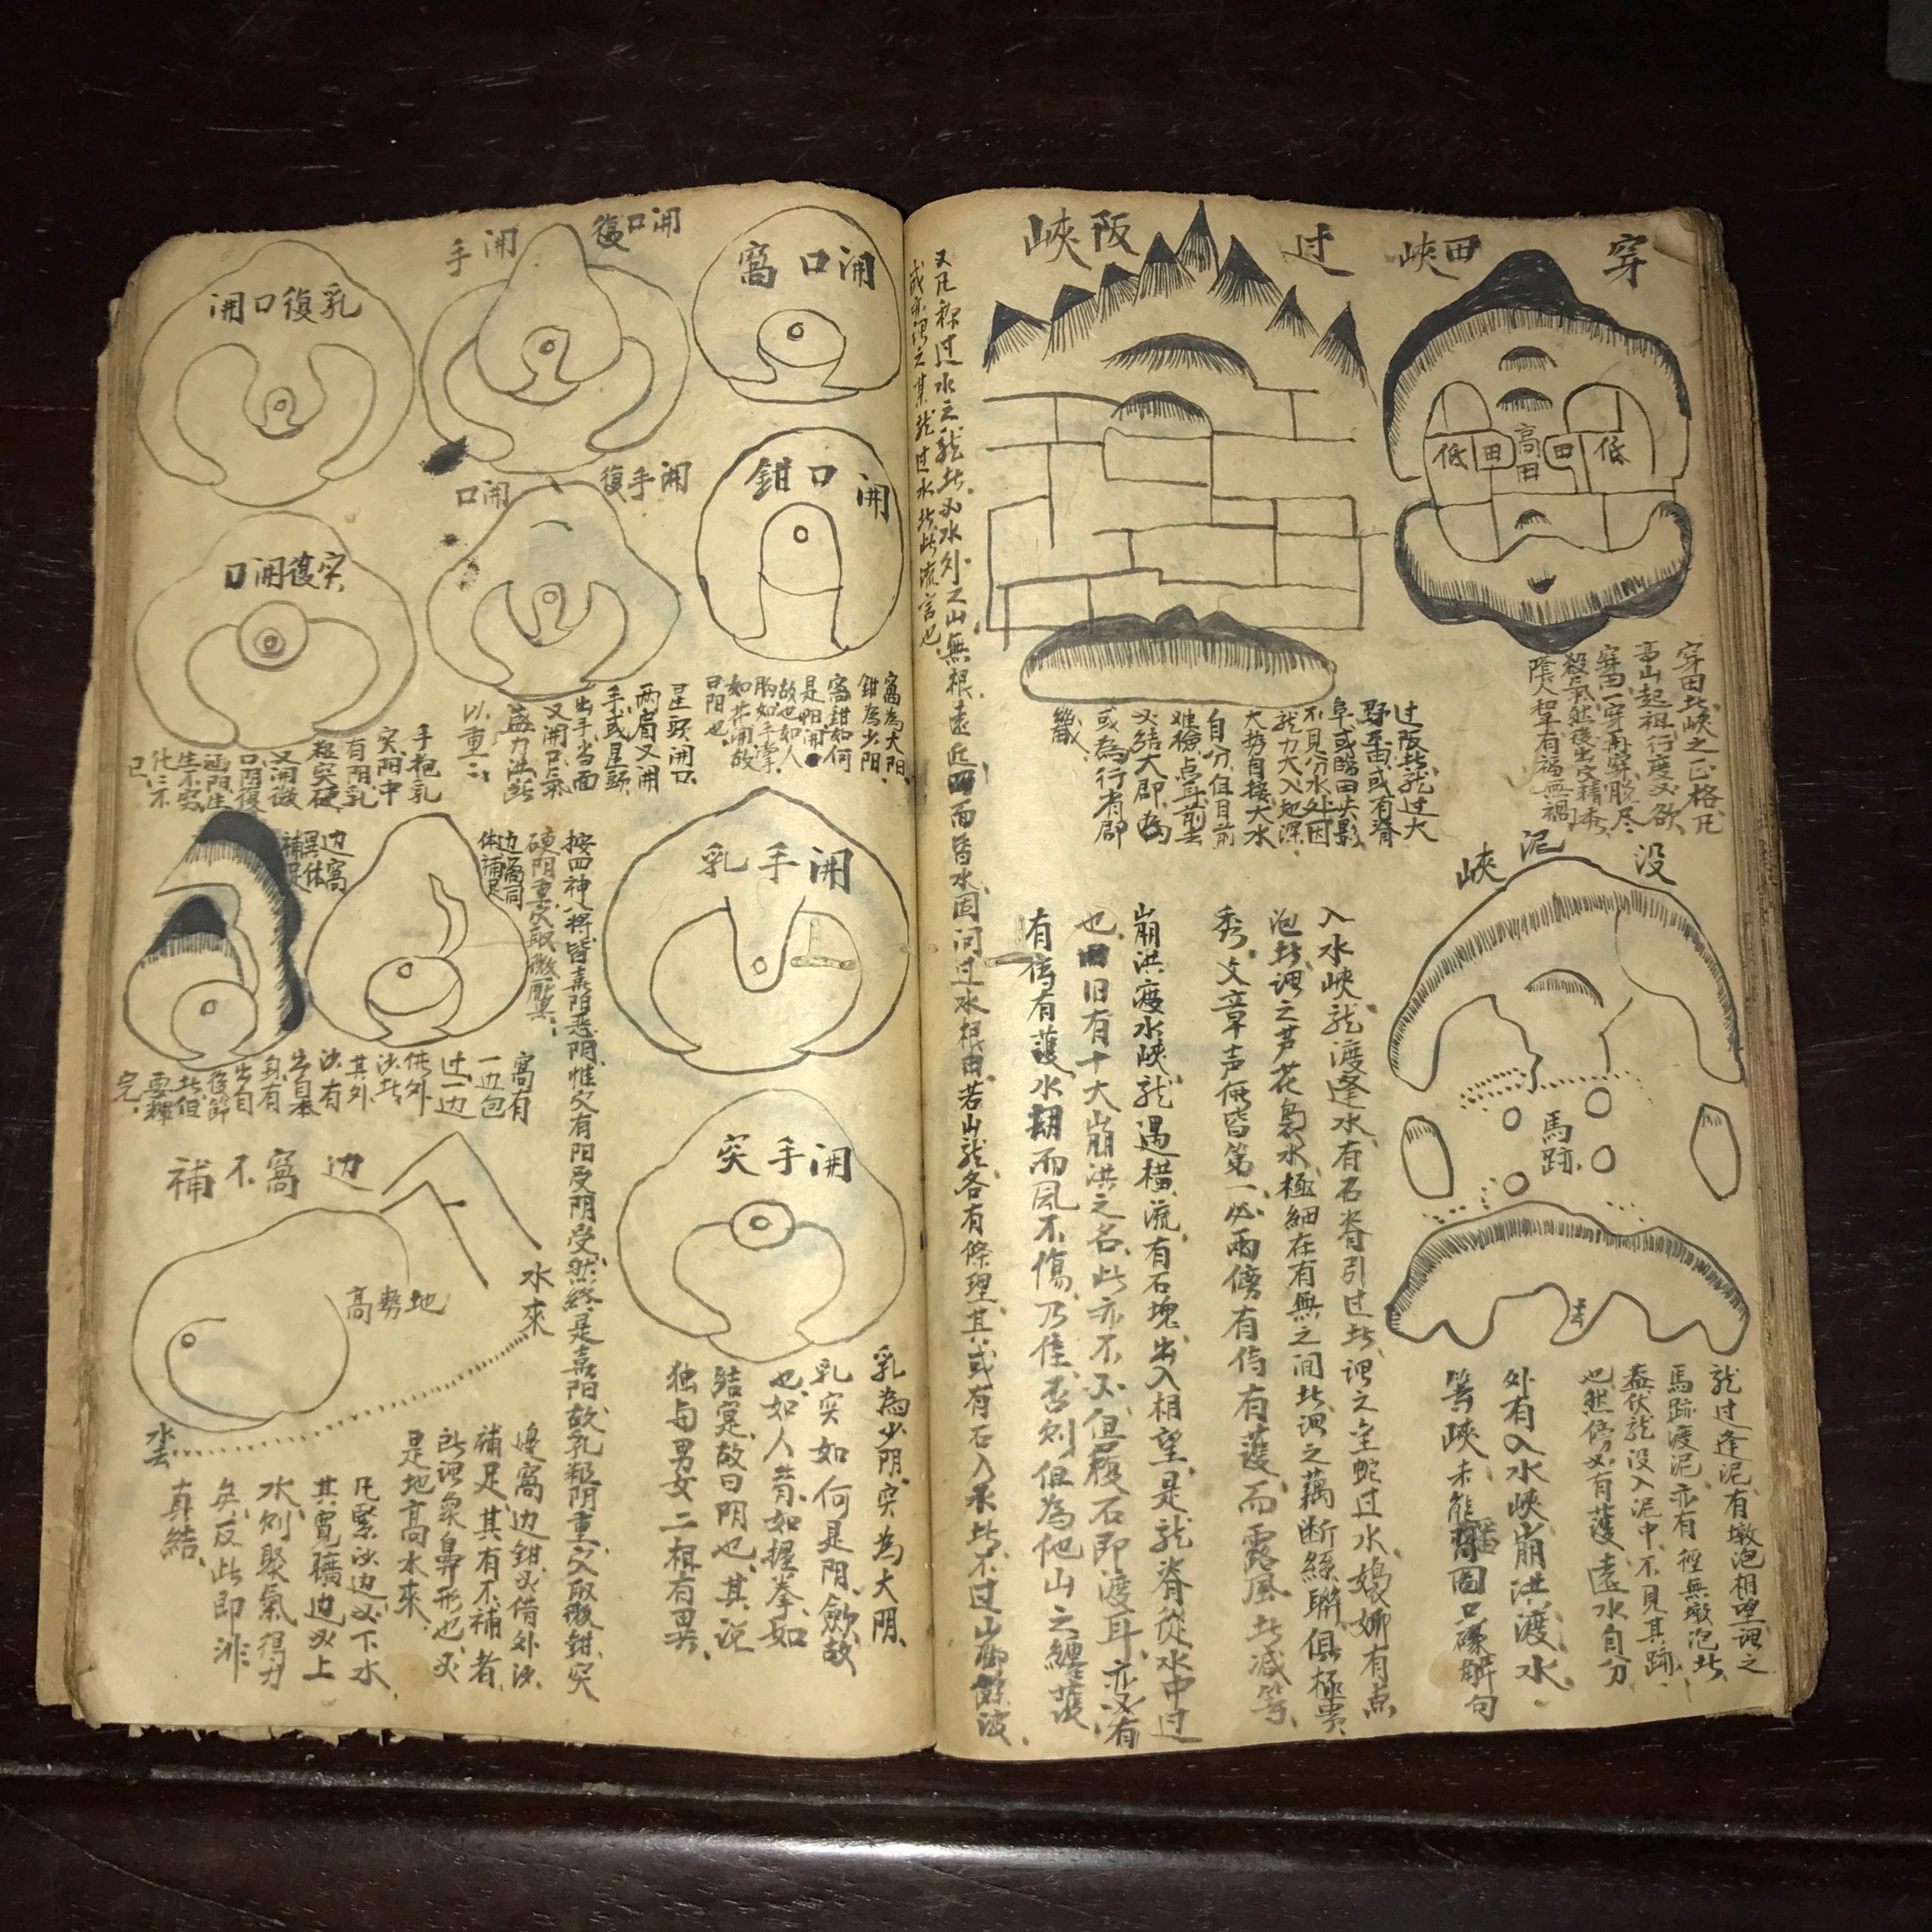 穿田峽
过阪峽
高田
低田
田低
穿田者峽之正格凡
高山起祖行度必欲
穿田一穿再穿脫尽
殺氣然後出文精秀
陰人和平有福無禍
过阪者龍过大
野平田或有脊
阜或臨田失影
不見分水处因
龍力大入地深
大势自接大水
自分但目前
难檢点耳前去
必结大郡為
或為行省郡
没泥峽
馬跡
去
龍过逢泥有墩泡相望謂之
馬跡渡泥亦有徑無墩泡者
蓋伏龍没入泥中不見其跡
也然傍必有護遠水自分
外有入水峽崩洪渡水
等峽未能
入水峽龍渡逢水有石脊引过者謂之金蛇过水
泡者謂之芦花裊水極細在有無之间者謂之藕断絲聯俱極
秀文章声価皆第一必兩傍有侍有護而露風者減等
崩洪渡水峽龍遇横流有石塊出入相望是龍脊從水中过
也旧有十大崩洪之名此亦不必但履石即渡耳亦必有
有侍有護水朝而風不傷乃佳否則但為他山之纏護
又凡称过水之龍者必水外之山無根遠近四面皆水因问过水根由若山龍各有條理其或有石入水者不过山脚餘波
或亦謂之某龍过水者此流言也
開口窩
開口鉗
窩為太阳
鉗為少阳
窩鉗如何
是阳開
故也如人
胸如手掌
如花開故
曰阳也
開口復
開手
開手復
開口
星頭開口
兩肩又開
手或星頭
出手当面
又開口氣
盛力洪此
以重
開口復乳
開口復突
手抱乳
突阳中
有阴乳
粗突硬
又開微
口阴復
涵阳生
生不穷
化不
已
開手乳
開手突
乳為少阴突為太阴
乳突如何是阴斂故
也如人背如握拳如
结實故曰阴也其说
独与男女二相有異
按四神八將皆喜阳恶阴惟穴有阳受阴受然終是喜阳故乳粗阴重穴取微鉗突
硬阴重穴取微窩
边窩同
体補足
边窩
異体
補足
窩有
一边包
过一边
供外
沙者
其外
沙有
生自本
身有
出自
後節
者但
要輝
完
边窩不補
地勢高
水來
水去
邊窩边鉗必借外沙
補足其有不補者
所謂象鼻形也必
是地高水來
凡緊沙边必下水
其寬曠边必上
水則聚氣得力
矣反此即非
真結